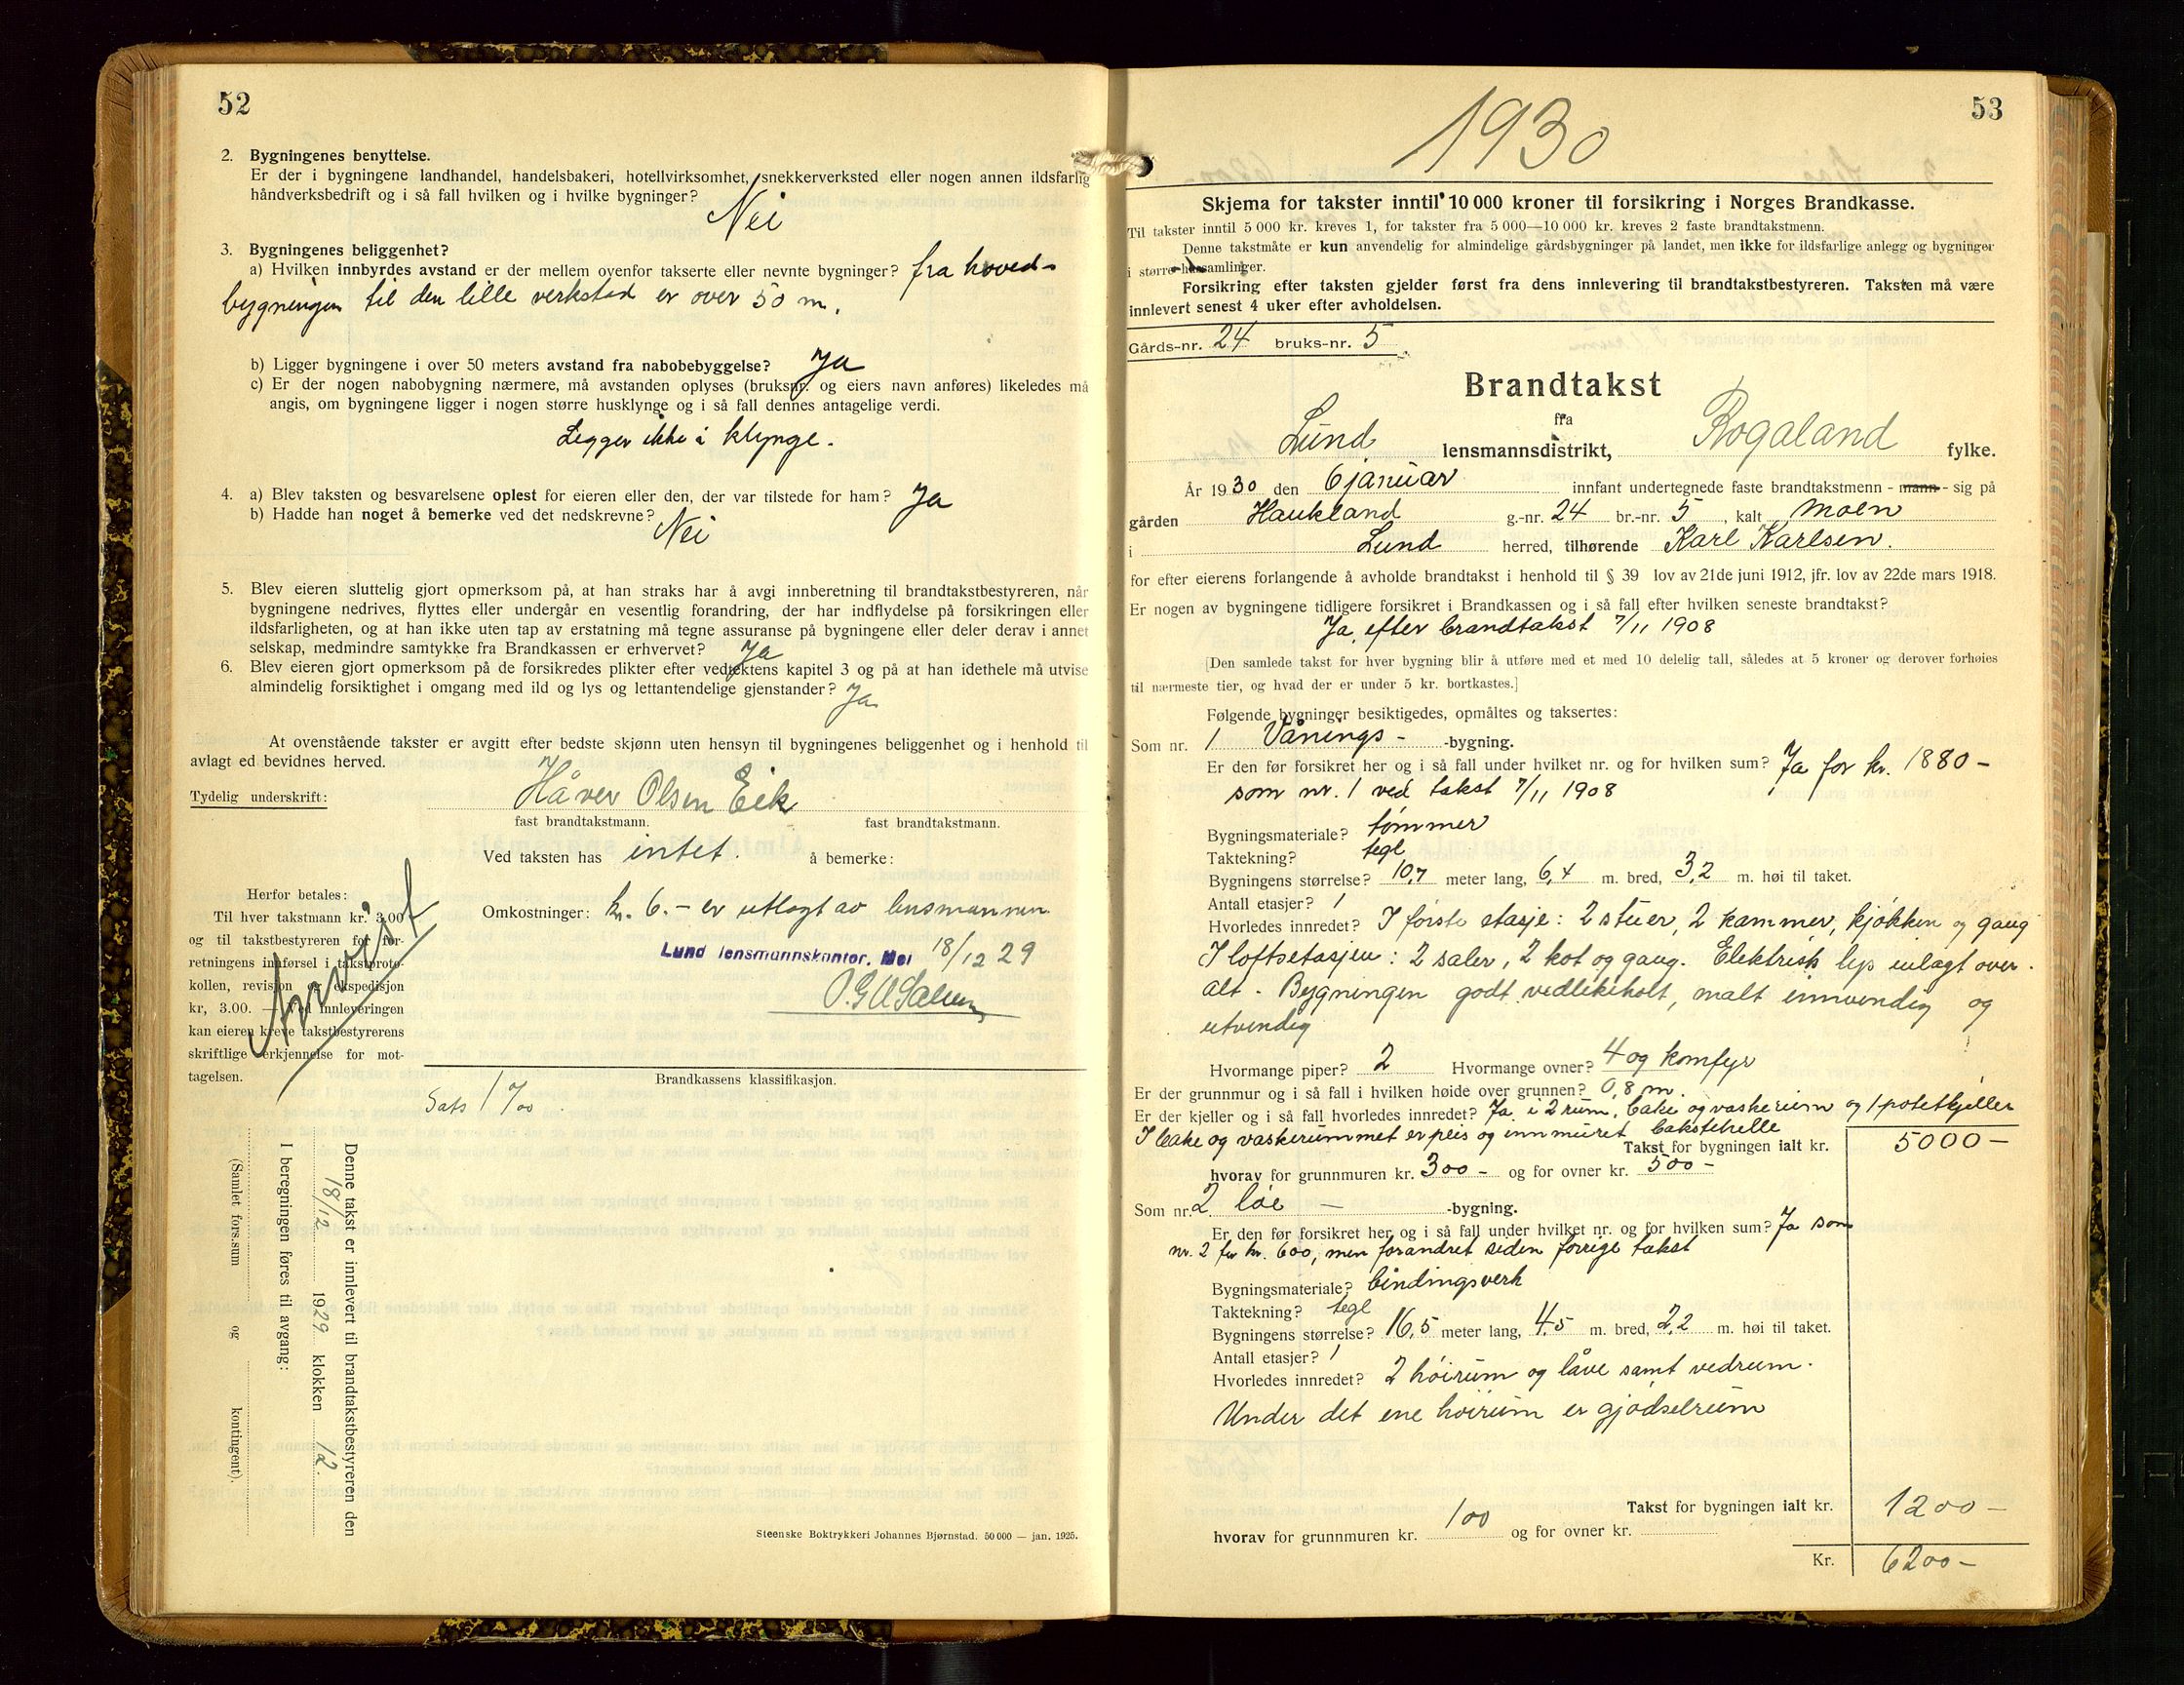 52
2. Bygningenes benyttelse.
Er der i bygningene landhandel, handelsbakeri, hotellvirksomhet, snekkerverksted eller nogen annen ildsfarlig
håndverksbedrift og i så fall hvilken og i hvilke bygninger?
Nei
3. Bygningenes beliggenhet?
a) Hvilken innbyrdes avstand er der mellem ovenfor takserte eller nevnte bygninger? fra hoved-
bygningen til den lille verksted er over 50 m.
b) Ligger bygningene i over 50 meters avstand fra nabobebyggelse? Ja
c) Er der nogen nabobygning nærmere, må avstanden oplyses (bruksnr. og eiers navn anføres) likeledes må
angis, om bygningene ligger i nogen større husklynge og i så fall dennes antagelige verdi.
Ligger ikke i klynge.
4. a) Blev taksten og besvarelsene oplest for eieren eller den, der var tilstede for ham? Ja
b) Hadde han noget å bemerke ved det nedskrevne?
Nei
5. Blev eieren sluttelig gjort opmerksom på, at han straks har å avgi innberetning til brandtakstbestyreren, når
bygningene nedrives, flyttes eller undergår en vesentlig forandring, der har indflydelse på forsikringen eller
ildsfarligheten, og at han ikke uten tap av erstatning må tegne assuranse på bygningene eller deler derav i annet
selskap, medmindre samtykke fra Brandkassen er erhvervet? Ja
6. Blev eieren gjort opmerksom på de forsikredes plikter efter vedtektens kapitel 3 og på at han idethele må utvise
almindelig forsiktighet i omgang med ild og lys og lettantendelige gjenstander? Ja
At ovenstående takster er avgitt efter bedste skjønn uten hensyn til bygningenes beliggenhet og i henhold til
avlagt ed bevidnes herved.
Tydelig underskrift: Håver Olsen Eik
fast brandtakstmann. fast brandtakstmann.
Ved taksten has intet. å bemerke:
Omkostninger: kr. 6.- er utlagt av lensmannen
Lund lensmannskontor, Moi 18/12 29
Herfor betales:
Til hver takstmann kr. 3.00
og til takstbestyreren for for-
retningens innførsel i takstproto-
kollen, revisjon og ekspedisjon
kr, 3.00. — Ved innleveringen
kan eieren kreve takstbestyrerens
skriftlige erkjennelse for mot-
tagelsen.
Avvist
Brandkassens klassifikasjon.
Sats 1 ‰
Denne takst er innlevert til brandtakstbestyreren den
18/12 1929 klokken 12.
I beregningen føres til avgang:
(Samlet fors.sum og kontingent).
Steenske Boktrykkeri Johannes Bjørnstad. 50 000 — jan. 1925.
53
1930
Skjema for takster inntil 10 000 kroner til forsikring i Norges Brandkasse.
Til takster inntil 5 000 kr. kreves 1, for takster fra 5 000—10 000 kr. kreves 2 faste brandtakstmenn.
Denne takstmåte er kun anvendelig for almindelige gårdsbygninger på landet, men ikke for ildsfarlige anlegg og bygninger
i større hussamlinger.
Forsikring efter taksten gjelder først fra dens innlevering til brandtakstbestyreren. Taksten må være
innlevert senest 4 uker efter avholdelsen.
Gårds-nr. 24 bruks-nr. 5
Brandtakst
fra
Lund lensmannsdistrikt, Rogaland fylke.
År 1930 den 6 januar innfant undertegnede faste brandtakstmenn - mann - sig på
gården Haukland g.-nr. 24 br.-nr. 5, kalt Moen
i Lund herred, tilhørende Karl Karlsen.
for efter eierens forlangende å avholde brandtakst i henhold til § 39 lov av 21de juni 1912, jfr. lov av 22de mars 1918.
Er nogen av bygningene tidligere forsikret i Brandkassen og i så fall efter hvilken seneste brandtakst?
Ja, efter brandtakst 7/11 1908
[Den samlede takst for hver bygning blir å utføre med et med 10 delelig tall, således at 5 kroner og derover forhøies
til nærmeste tier, og hvad der er under 5 kr. bortkastes.]
Følgende bygninger besiktigedes, opmåltes og taksertes:
Som nr. 1 Vånings- -bygning.
Er den før forsikret her og i så fall under hvilket nr. og for hvilken sum? Ja for kr. 1880-
som nr. 1 ved takst 7/11 1908
Bygningsmateriale? tømmer
Taktekning? tegl
Bygningens størrelse? 10,7 meter lang, 6,4 m. bred, 3,2 m. høi til taket.
Antall etasjer? 1
Hvorledes innredet? I første etasje: 2 stuer, 2 kammer, kjøkken og gang
I loftsetasjen: 2 saler, 2 kot og gang. Elektrisk lys innlagt over-
alt. Bygningen godt vedlikeholt, malt innvendig og
utvendig
Hvormange piper? 2 Hvormange ovner? 4 og komfyr
Er der grunnmur og i så fall i hvilken høide over grunnen? 0,8 m.
Er der kjeller og i så fall hvorledes innredet? Ja i 2 rum, bake og vaskerum og 1 potetkjeller
I bake og vaskerummet er peis og innmuret bakstehelle
Takst for bygningen ialt kr. 5000-
hvorav for grunnmuren kr. 300- og for ovner kr. 500-
Som nr. 2 løe - -bygning.
Er den før forsikret her og i så fall under hvilket nr. og for hvilken sum? Ja som
nr. 2 for kr. 600, men forandret siden forrige takst
Bygningsmateriale? bindingsverk
Taktekning? tegl
Bygningens størrelse? 16,5 meter lang, 4,5 m. bred, 2,2 m. høi til taket.
Antall etasjer? 1
Hvorledes innredet? 2 høirum og låve samt vedrum.
Under det ene høirum er gjødselrum
Takst for bygningen ialt kr. 1200-
hvorav for grunnmuren kr. 100 og for ovner kr.
Kr. 6200-